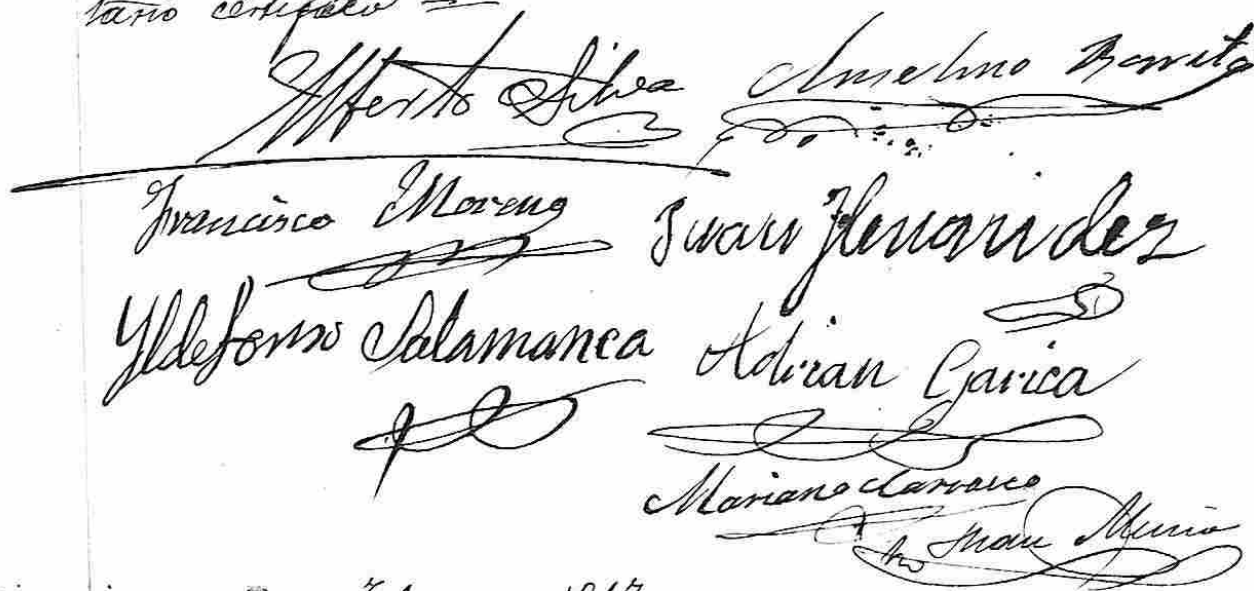 tario certifico =
Alberto Silva Anselmo Benito
Francisco Moreno Juan Hernandez
Yldefonso Salamanca Adrian Garica
Mariano Carrasco
Juan